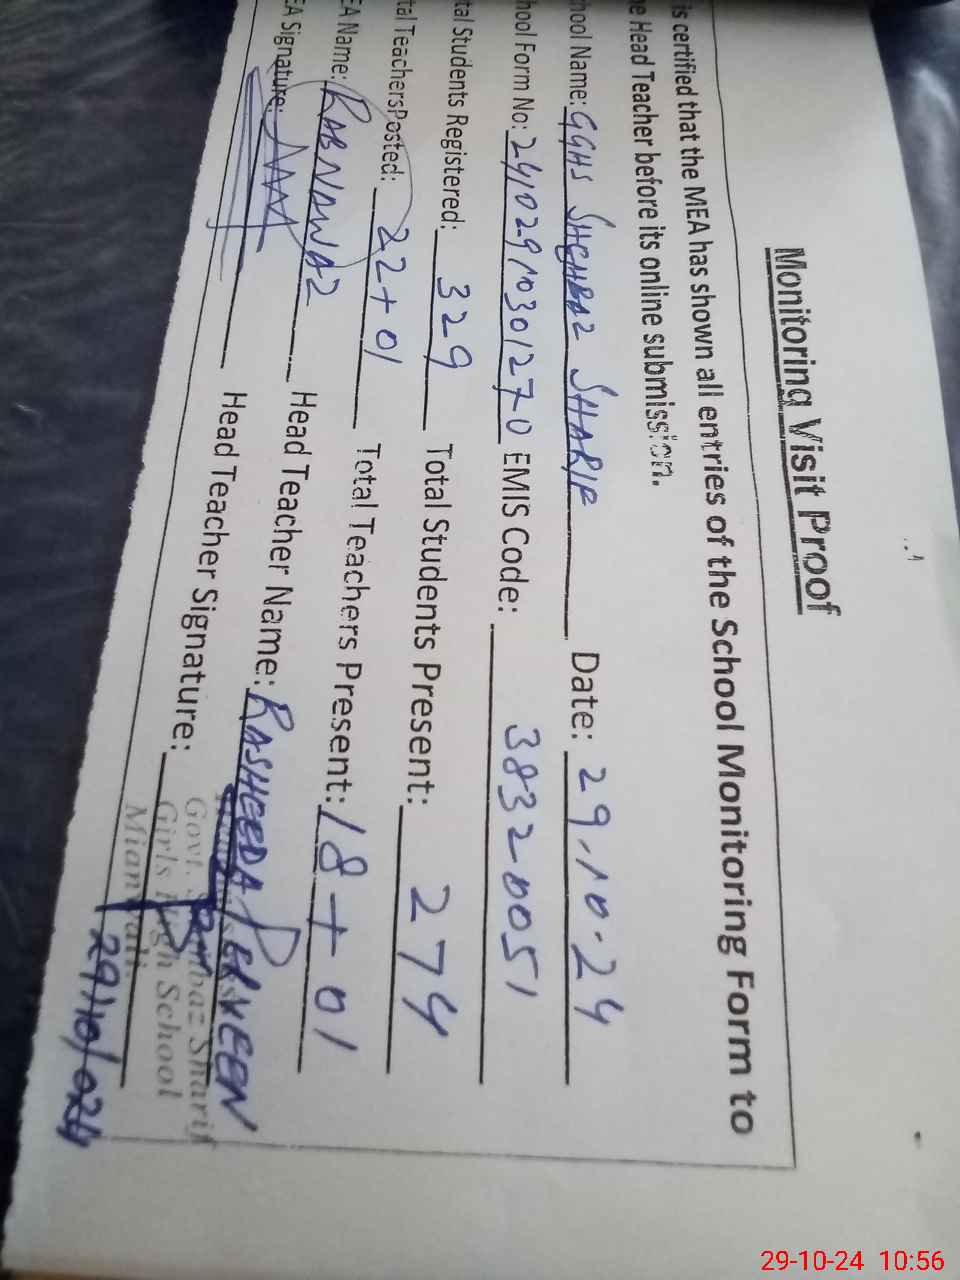 Monitoring Visit Proof
is certified that the MEA has shown all entries of the School Monitoring Form to
e Head Teacher before its online submission.
hool Name: GGHS SHEHBAZ SHARIF Date: 29.10.24
hool Form No: 24102910301270 EMIS Code: 38320051
tal Students Registered: 329 Total Students Present: 274
tal TeachersPosted: 22+01 Total Teachers Present: 18+01
EA Name: RABNAWAZ Head Teacher Name: RASHEEDA PERVEEN
EA Signature: Head Teacher Signature:
Govt. Sharif
Girls High School
Mianwali.
29/10/024
29-10-24 10:56